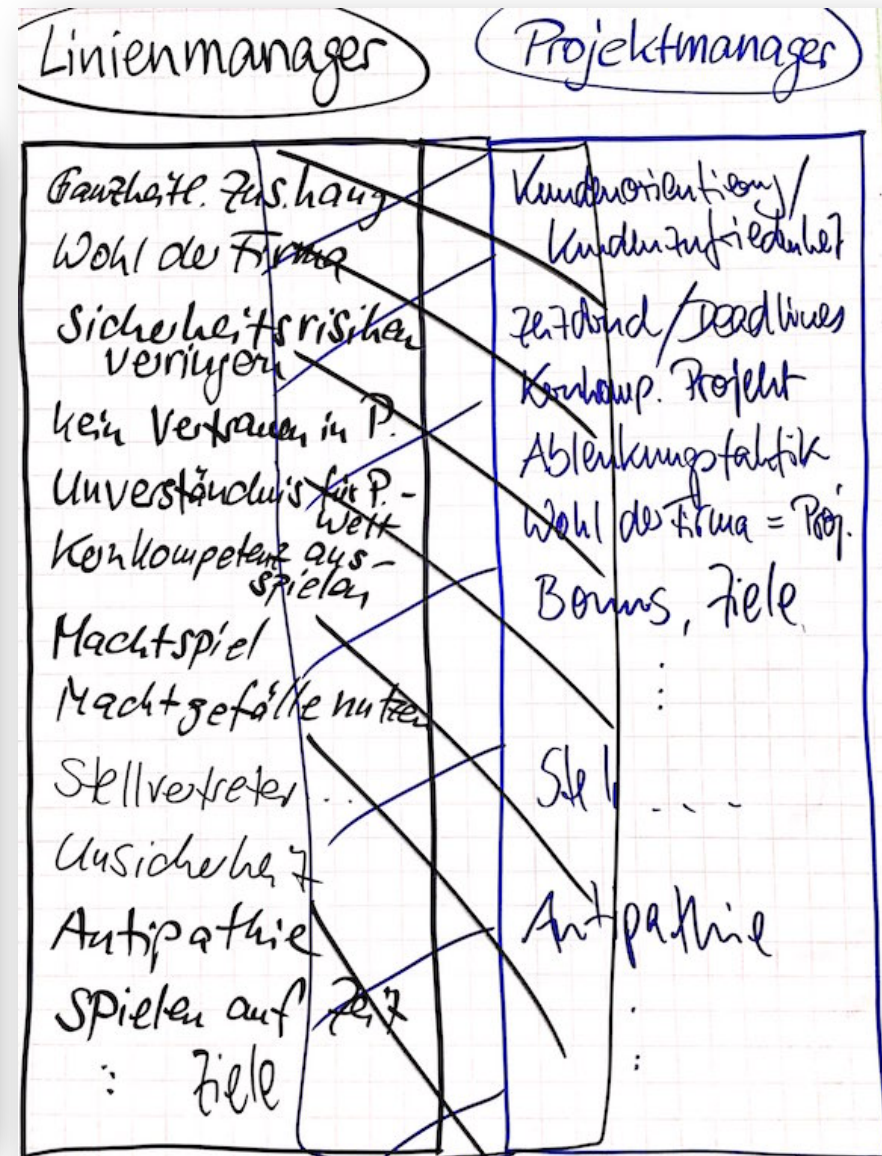 Linienmanager
Ganzheitl. Zus.hang
Wohl der Firma
Sicherheitsrisiken
verringern
kein Vertrauen in P.
Unverständnis für P.-
Welt
Kernkompetenz aus-
spielen
Machtspiel
Machtgefälle nutzen
Stellvertreter...
Unsicherheit
Antipathie
Spielen auf Zeit
:
Ziele
Projektmanager
Kundenorientierung/
Kundenzufriedenheit
Zeitdruck/Deadlines
Kernkomp. Projekt
Ablenkungstaktik
Wohl der Firma = Proj.
Bonus, Ziele
:
Stell - - -
Antipathie
: